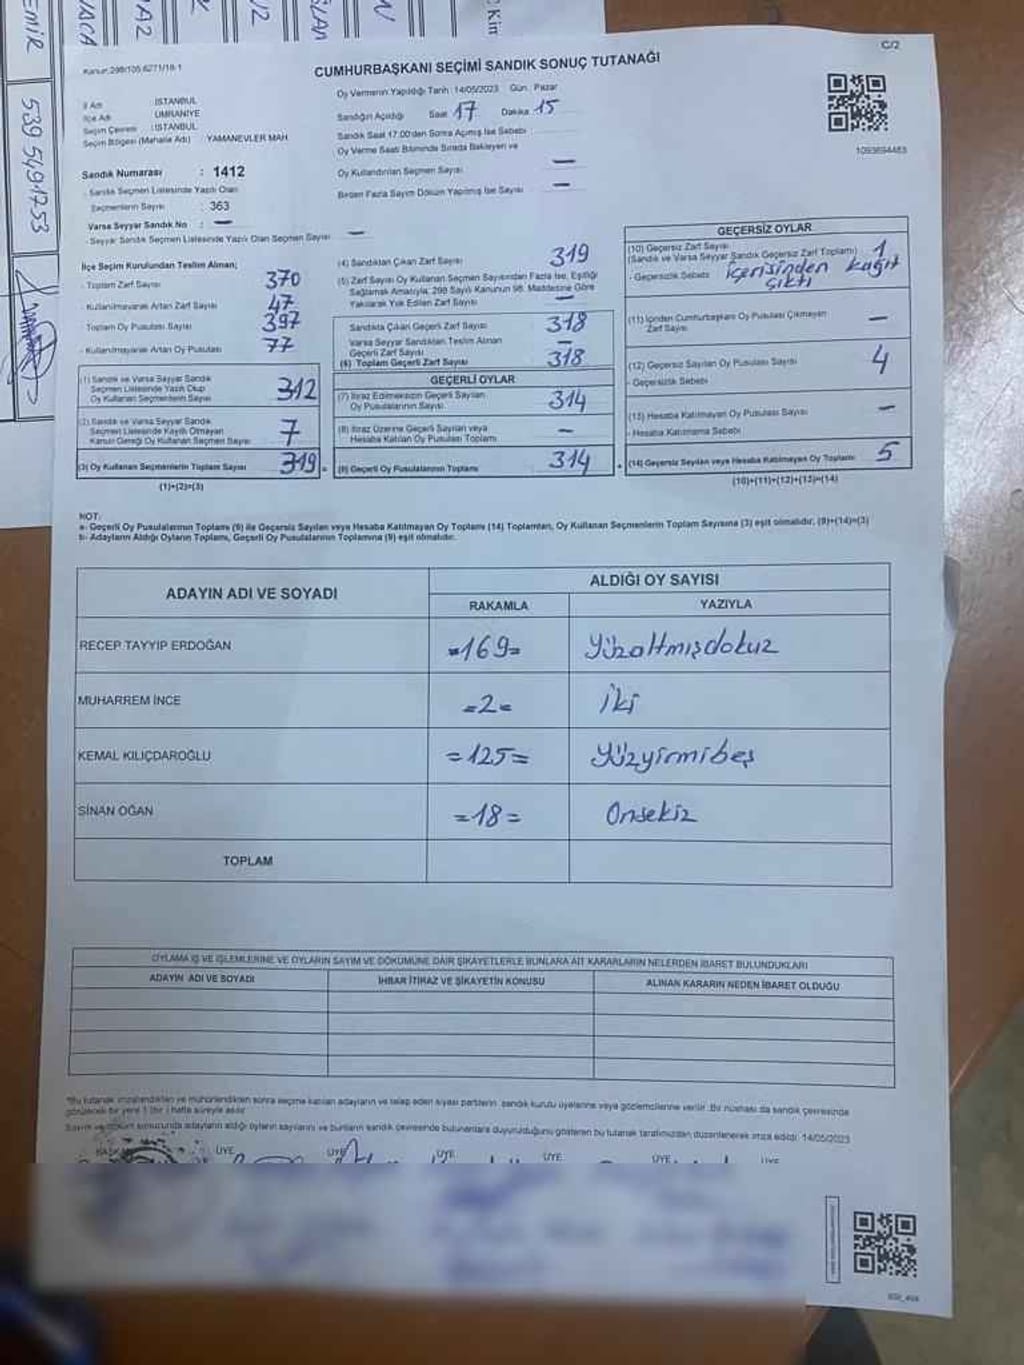 EMİR
539 549 17 53
VACA
VA2
V2
SLAN
Kim
C/2
Kanun:298/105.6271/18-1
CUMHURBAŞKANI SEÇİMİ SANDIK SONUÇ TUTANAĞI
Oy Vermenin Yapıldığı Tarih :14/05/2023 Gün : Pazar
İl Adı : İSTANBUL
İlçe Adı : ÜMRANİYE
Seçim Çevresi : İSTANBUL
Seçim Bölgesi (Mahalle Adı) : YAMANEVLER MAH.
Sandığın Açıldığı Saat 17 Dakika 15
Sandık Saat 17:00'den Sonra Açılmış İse Sebebi
Oy Verme Saati Bitiminde Sırada Bekleyen ve
Oy Kullandırılan Seçmen Sayısı —
Birden Fazla Sayım Döküm Yapılmış İse Sayısı —
1093694483
Sandık Numarası : 1412
- Sandık Seçmen Listesinde Yazılı Olan
Seçmenlerin Sayısı : 363
Varsa Seyyar Sandık No : —
- Seyyar Sandık Seçmen Listesinde Yazılı Olan Seçmen Sayısı —
İlçe Seçim Kurulundan Teslim Alınan;
- Toplam Zarf Sayısı 370
- Kullanılmayarak Artan Zarf Sayısı 47
Toplam Oy Pusulası Sayısı 397
- Kullanılmayarak Artan Oy Pusulası 77
(1) Sandık ve Varsa Seyyar Sandık
Seçmen Listesinde Yazılı Olup
Oy Kullanan Seçmenlerin Sayısı 312
(2) Sandık ve Varsa Seyyar Sandık
Seçmen Listesinde Kayıtlı Olmayan
Kanun Gereği Oy Kullanan Seçmen Sayısı 7
(3) Oy Kullanan Seçmenlerin Toplam Sayısı 319
(1)+(2)=(3)
(4) Sandıktan Çıkan Zarf Sayısı 319
(5) Zarf Sayısı Oy Kullanan Seçmen Sayısından Fazla İse, Eşitliği
Sağlamak Amacıyla, 298 Sayılı Kanunun 98. Maddesine Göre
Yakılarak Yok Edilen Zarf Sayısı —
Sandıkta Çıkan Geçerli Zarf Sayısı 318
Varsa Seyyar Sandıktan Teslim Alınan
Geçerli Zarf Sayısı —
(6) Toplam Geçerli Zarf Sayısı 318
GEÇERLİ OYLAR
(7) İtiraz Edilmeksizin Geçerli Sayılan
Oy Pusulalarının Sayısı 314
(8) İtiraz Üzerine Geçerli Sayılan veya
Hesaba Katılan Oy Pusulası Toplamı —
(9) Geçerli Oy Pusulalarının Toplamı 314
GEÇERSİZ OYLAR
(10) Geçersiz Zarf Sayısı
(Sandık ve Varsa Seyyar Sandık Geçersiz Zarf Toplamı) 1
- Geçersizlik Sebebi içerisinden kağıt
çıktı
(11) İçinden Cumhurbaşkanı Oy Pusulası Çıkmayan
Zarf Sayısı —
(12) Geçersiz Sayılan Oy Pusulası Sayısı 4
- Geçersizlik Sebebi
(13) Hesaba Katılmayan Oy Pusulası Sayısı —
- Hesaba Katılmama Sebebi
(14) Geçersiz Sayılan veya Hesaba Katılmayan Oy Toplamı 5
(10)+(11)+(12)+(13)=(14)
NOT:
a- Geçerli Oy Pusulalarının Toplamı (9) ile Geçersiz Sayılan veya Hesaba Katılmayan Oy Toplamı (14) Toplamları, Oy Kullanan Seçmenlerin Toplam Sayısına (3) eşit olmalıdır, (9)+(14)=(3)
b- Adayların Aldığı Oyların Toplamı, Geçerli Oy Pusulalarının Toplamına (9) eşit olmalıdır.
ADAYIN ADI VE SOYADI
ALDIĞI OY SAYISI
RAKAMLA YAZIYLA
RECEP TAYYIP ERDOĞAN =169= Yüzaltmışdokuz
MUHARREM İNCE =2= İki
KEMAL KILIÇDAROĞLU =125= Yüzyirmibeş
SİNAN OĞAN =18= Onsekiz
TOPLAM
OYLAMA İŞ VE İŞLEMLERİNE VE OYLARIN SAYIM VE DÖKÜMÜNE DAİR ŞİKAYETLERLE BUNLARA AİT KARARLARIN NELERDEN İBARET BULUNDUKLARI
ADAYIN ADI VE SOYADI İHBAR İTİRAZ VE ŞİKAYETİN KONUSU ALINAN KARARIN NEDEN İBARET OLDUĞU
*Bu tutanak imzalandıktan ve mühürlendikten sonra seçime katılan adayların ve talep eden siyasi partilerin sandık kurulu üyelerine veya gözlemcilerine verilir. Bir nüshası da sandık çevresinde
görülecek bir yere 1 (bir) hafta süreyle asılır.
Sayım ve döküm sonucunda adayların aldığı oyların sayılarını ve bunların sandık çevresinde bulunanlara duyurulduğunu gösteren bu tutanak tarafımızdan düzenlenerek imza edildi. 14/05/2023
BAŞKAN ÜYE ÜYE ÜYE ÜYE ÜYE ÜYE